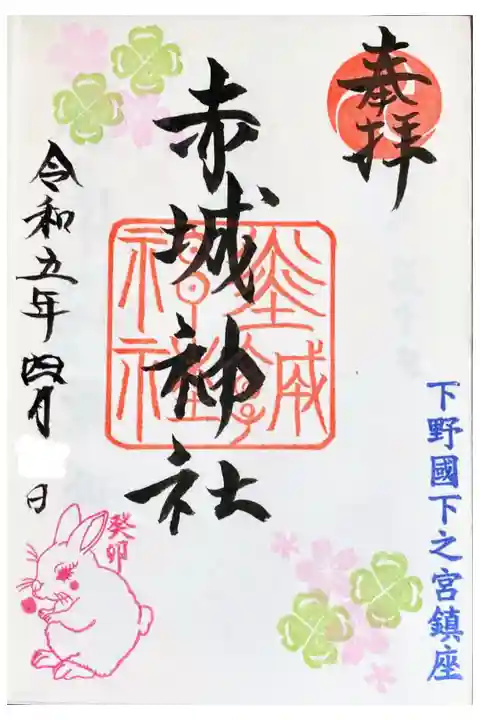 奉拝
下野國下之宮鎮座
赤城神社
令和五年四月
日
癸卯